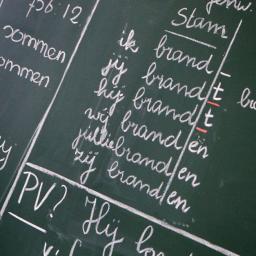 756:12
sommen
ommen
Stam
ik brand -
jij brand t
hij brand t
wij brand en
jullie brand en
zij brand en
PV? Hij